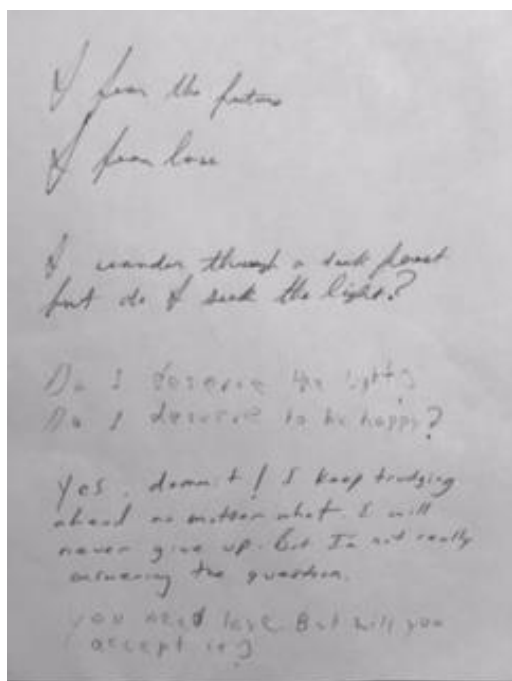 I fear the future
I fear love
I wander through a dark forest
but do I seek the light?
Do I deserve the light?
Do I deserve to be happy?
Yes, dammit! I keep trudging
ahead no matter what. I will
never give up. But I'm not really
answering the question.
you need love. But will you
accept it?